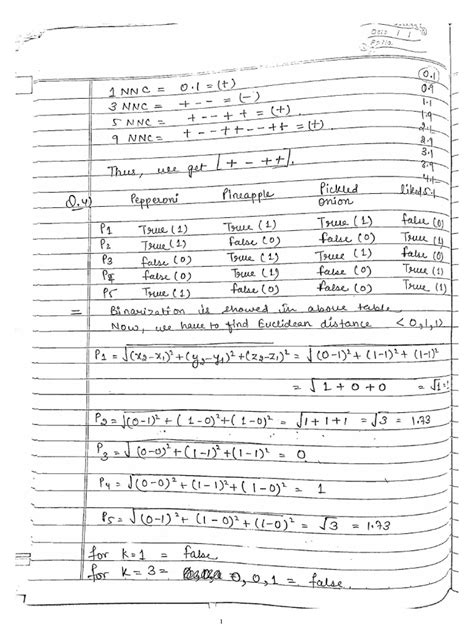 Date 1 1
0.1
1 NNC = 0.1 = (+)
0.9
3 NNC = + - - = (-)
1.1
5 NNC = + - - + + = (+)
1.9
9 NNC = + - - + + - - + + = (+)
2.1
2.9
3.1
Thus, we get [+ - + +].
3.9
4.1
Q.4) Pepperoni Pineapple Pickled onion liked 5.1
P1 True (1) True (1) True (1) false (0)
P2 True (1) false (0) false (0) True (1)
P3 false (0) True (1) True (1) false (0)
P4 false (0) True (1) false (0) True (1)
P5 True (1) false (0) false (0) True (1)
= Binarization is showed in above table.
Now, we have to find Euclidean distance <0,1,1>
P1 = √(x2-x1)² + (y2-y1)² + (z2-z1)² = √(0-1)² + (1-1)² + (1-1)²
= √1+0+0 = √1 =
P2 = √(0-1)² + (1-0)² + (1-0)² = √1+1+1 = √3 = 1.73
P3 = √(0-0)² + (1-1)² + (1-1)² = 0
P4 = √(0-0)² + (1-1)² + (1-0)² = 1
P5 = √(0-1)² + (1-0)² + (1-0)² = √3 = 1.73
for k=1 = false
for k=3 = 0,0,1 = false.
1